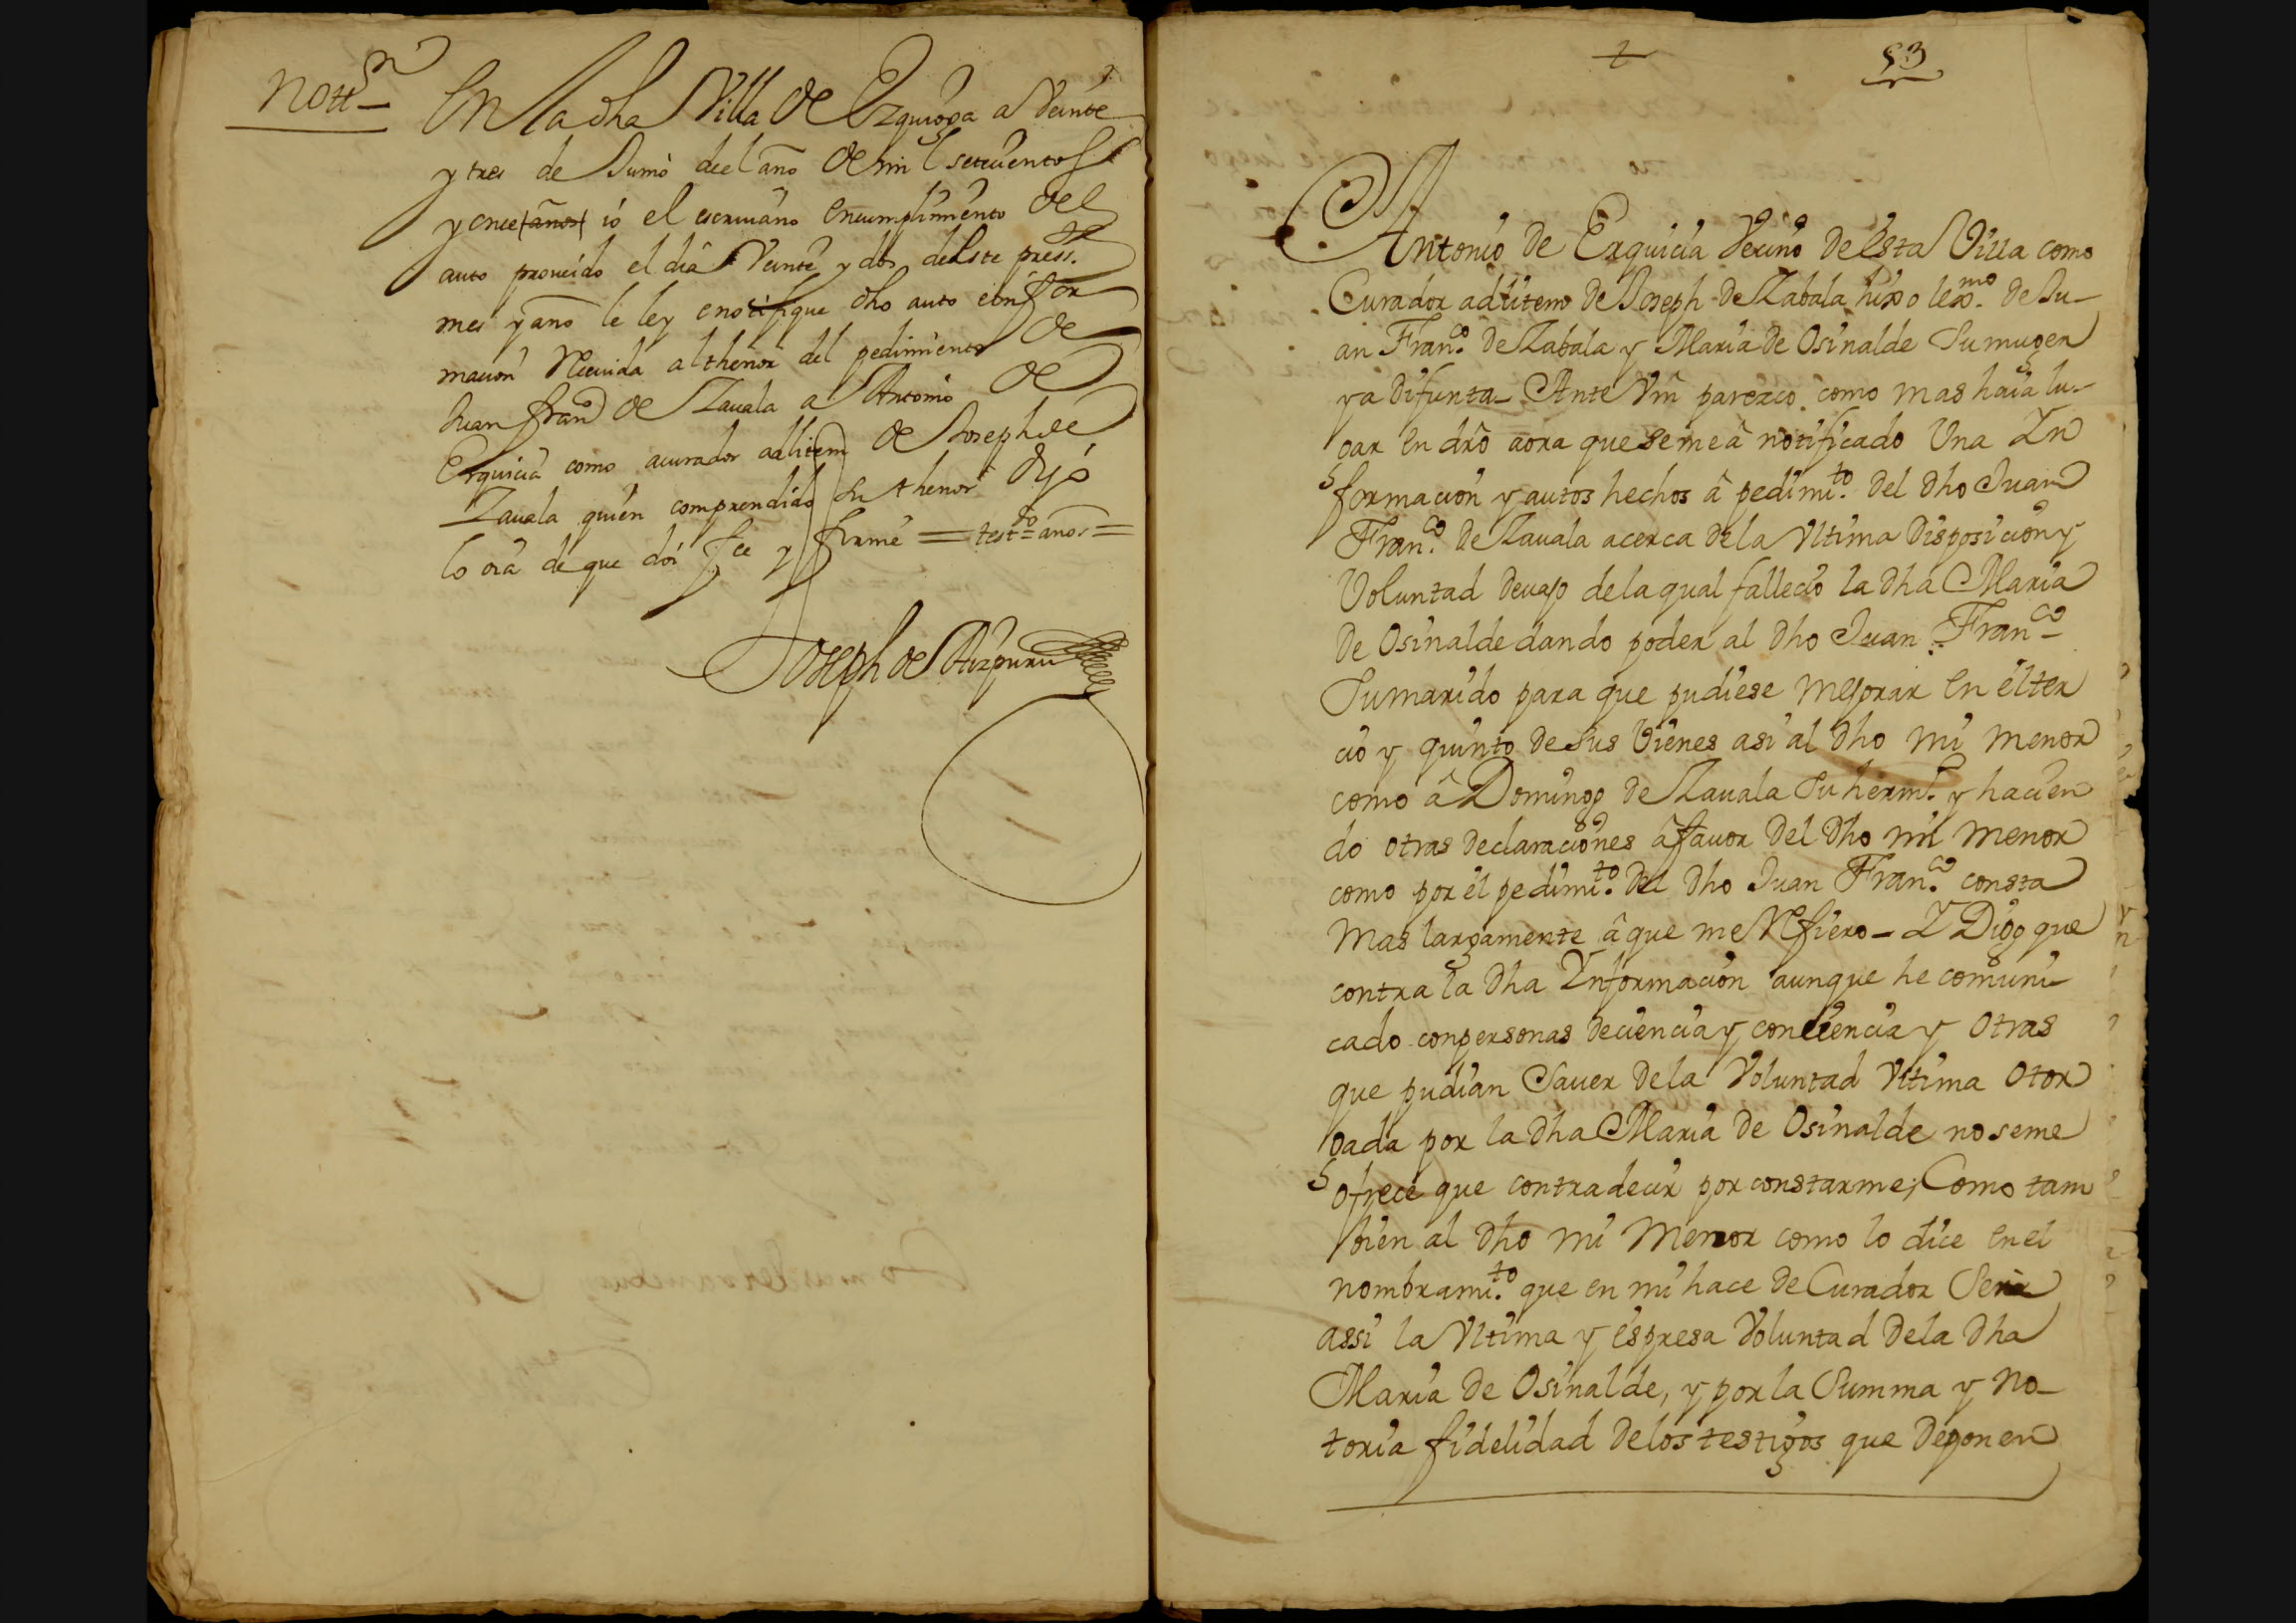 Nottn
En la dha Villa de Ezquioga a Veinte
y tres de Junio deel año de mil setecientos
y once (años) io el escriuano en cumplimiento del
auto proueido el dia Veinte y dos deeste press.te
mes y año le ley e notifique dho auto e infor
macion Reciuida al thenor del pedimiento de
Juan Fran.co de Zauala a Antonio de
Ezquicia como acurador adlitem de Joseph de
Zauala quien comprendido su thenor dijo
lo oia de que doi fee y firmé = test.do años =
Joseph de Aizpuru
+ 53
Antonio de Ezquicia Vecino de esta Villa como
Curador adlitem de Joseph de Zabala hixo lex.mo de Ju-
an Fran.co de Zabala y Maria de Osinalde Su muger
ya difunta - Ante Vm parezco como mas haia lu-
gar en dro aora que se me â notificado Una In
formacion y autos hechos â pedimi.to del dho Juan
Fran.co de Zauala acerca dela Vltima Disposicion y
Voluntad deuajo dela qual fallecio la dha Maria
de Osinalde dando poder al dho Juan Fran.co
Su marido para que pudiese mejorar en el ter
cio y quinto de sus Vienes asi al dho mi menor
como â Domingo de Zauala Su herm.o y hacien
do otras declaraciones â fauor del dho mi menor
como por el pedimi.to del dho Juan Fran.co consta
mas largamente â que me Refiero - Y Digo que
contra la dha Informacion aunque he comuni
cado con personas de ciencia y conciencia y otras
que pudian Sauer dela Voluntad Vltima otor
gada por la dha Maria de Osinalde no se me
ofrece que contradecir por constarme, Como tam
bien al dho mi Menor como lo dice en el
nombrami.to que en mi hace de Curador Seria
assi la Vltima y espresa Voluntad dela dha
Maria de Osinalde, y por la Summa y no-
toria fidelidad delos testigos que deponen